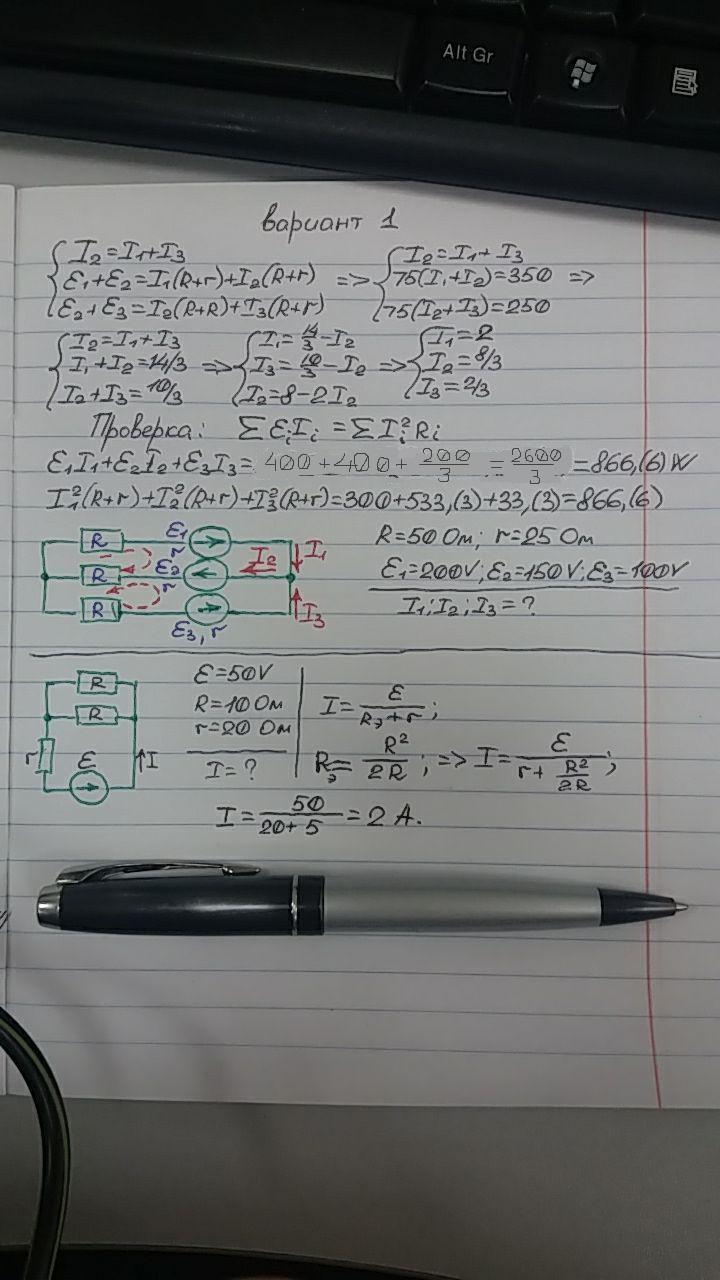 Alt Gr
вариант 1
I₂=I₁+I₃
ε₁+ε₂=I₁(R+r)+I₂(R+r) =>
ε₂+ε₃=I₂(R+R)+I₃(R+r)
I₂=I₁+I₃
75(I₁+I₂)=350 =>
75(I₂+I₃)=250
I₂=I₁+I₃
I₁+I₂=14/3 =>
I₂+I₃=10/3
I₁=14/3-I₂
I₃=10/3-I₂ =>
I₂=8-2I₂
I₁=2
I₂=8/3
I₃=2/3
Проверка: ΣεᵢIᵢ=ΣIᵢ²Rᵢ
ε₁I₁+ε₂I₂+ε₃I₃=400+400+200/3=2600/3=866,(6)W
I₁²(R+r)+I₂²(R+r)+I₃²(R+r)=300+533,(3)+33,(3)=866,(6)
R ε₁ r
R ε₂ r I₂ I₁
R ε₃, r I₃
R=50 Ом; r=25 Ом
ε₁=200V; ε₂=150V; ε₃=100V
I₁; I₂; I₃=?
R
R
r ε I
ε=50V
R=10 Ом
r=20 Ом
I=?
I=ε/(Rэ+r);
Rэ=R²/2R; => I=ε/(r+R²/2R);
I=50/(20+5)=2 A.